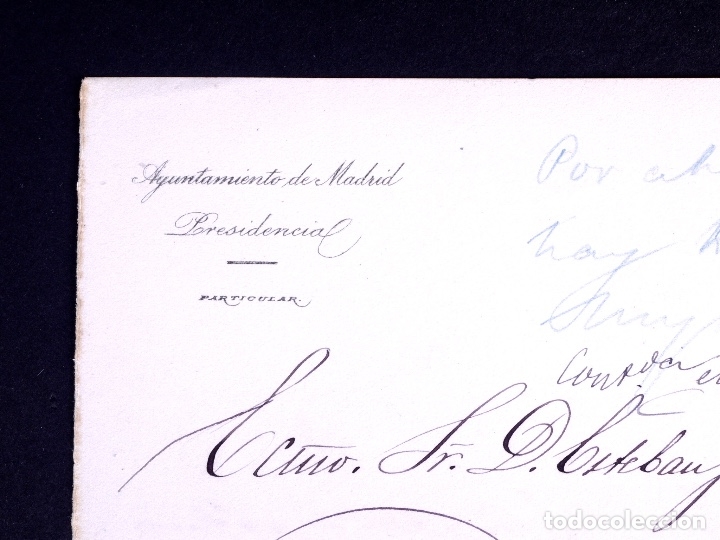 Ayuntamiento de Madrid
Presidencia
PARTICULAR.
Por ah
hay
Muy
Cont.da e
Ecmo. Sr. D. Esteban
todocoleccion